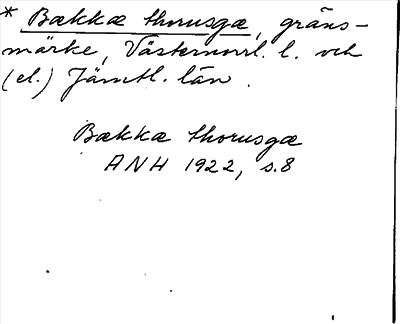 * Bækkæ thorusgæ, gräns-
märke, Västernorrl. l. och
(el.) Jämtl. län.
Bækkæ thorusgæ
ANH 1922, s. 8